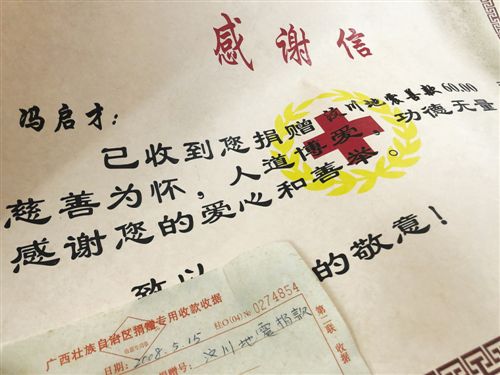 感谢信
冯启才：
已收到您捐赠汶川地震善款60.00
慈善为怀，人道博爱，功德无量
感谢您的爱心和善举。
致以
的敬意！
广西壮族自治区捐赠专用收款收据
桂O(04)№ 0274854
日期：2008.5.15
捐赠号：
汶川地震捐款
第二联 收据